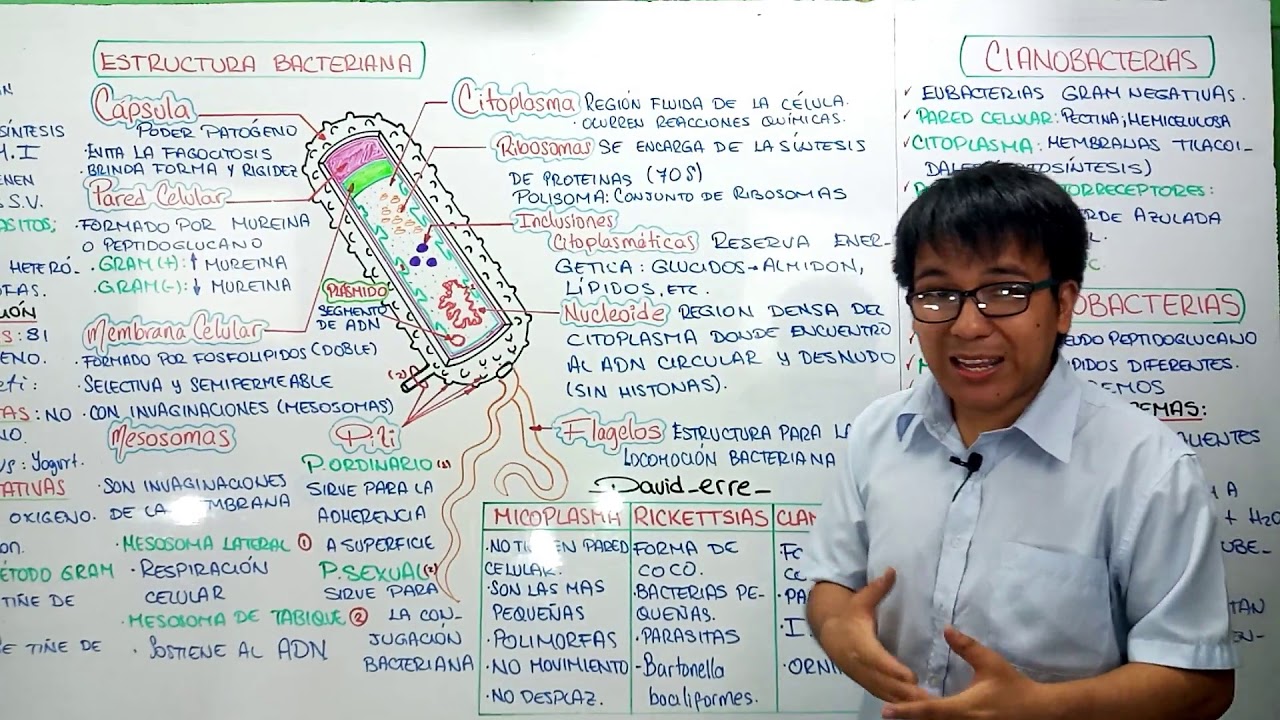 ESTRUCTURA BACTERIANA
Cápsula
PODER PATÓGENO
· EVITA LA FAGOCITOSIS
· BRINDA FORMA Y RIGIDEZ
Pared Celular
· FORMADO POR MUREINA
O PEPTIDOGLUCANO
· GRAM(+): ↑ MUREINA
· GRAM(-): ↓ MUREINA
Membrana Celular
· FORMADO POR FOSFOLIPIDOS (DOBLE)
· SELECTIVA Y SEMIPERMEABLE
· CON INVAGINACIONES (MESOSOMAS)
Mesosomas
· SON INVAGINACIONES
DE LA MEMBRANA
· MESOSOMA LATERAL ①
· RESPIRACIÓN
CELULAR
· MESOSOMA DE TABIQUE ②
· SOSTIENE AL ADN
PLÁSMIDO
SEGMENTO
DE ADN
(2)
Pili
P. ORDINARIO (1)
SIRVE PARA LA
ADHERENCIA
A SUPERFICIE
P. SEXUAL (2)
SIRVE PARA
LA CON-
JUGACIÓN
BACTERIANA
Citoplasma REGIÓN FLUIDA DE LA CÉLULA.
· OCURREN REACCIONES QUÍMICAS.
Ribosomas SE ENCARGA DE LA SÍNTESIS
DE PROTEINAS (70S)
POLISOMA: CONJUNTO DE RIBOSOMAS
Inclusiones
Citoplasmáticas RESERVA ENER-
GETICA: GLUCIDOS → ALMIDON,
LÍPIDOS, ETC.
Nucleoide REGION DENSA DEL
CITOPLASMA DONDE ENCUENTRO
AL ADN CIRCULAR Y DESNUDO
(SIN HISTONAS).
Flagelos ESTRUCTURA PARA LA
LOCOMOCIÓN BACTERIANA
David_erre_
MICOPLASMA
· NO TIENEN PARED
CELULAR.
· SON LAS MAS
PEQUEÑAS
· POLIMORFAS
· NO MOVIMIENTO
· NO DESPLAZ.
RICKETTSIAS
FORMA DE
COCO.
BACTERIAS PE-
QUEÑAS.
· PARASITAS
- Bartonella
baciliformes.
CIANOBACTERIAS
✓ EUBACTERIAS GRAM NEGATIVAS.
✓ PARED CELULAR: PECTINA; HEMICELULOSA
✓ CITOPLASMA: MEMBRANAS TILACOI-
AZULADA
PEPTIDOGLUCANO
DIFERENTES.
SÍNTESIS
M.I
S.V.
HETERÓ-
: 81
: NO
: Yogurt.
OXIGENO.
GRAM
TIÑE DE
TIÑE DE
+ H₂O